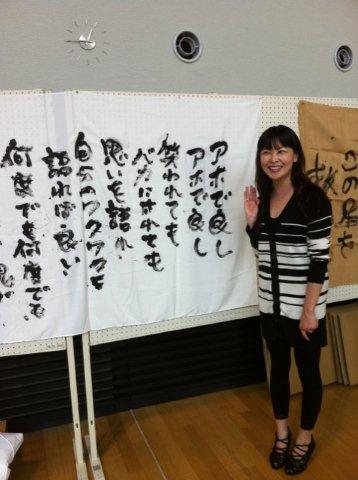 アホで良し
アホで良し
笑われても
バカにされても
思いを語れ
自分のワクワクを
語れば良い
何度でも何度でも